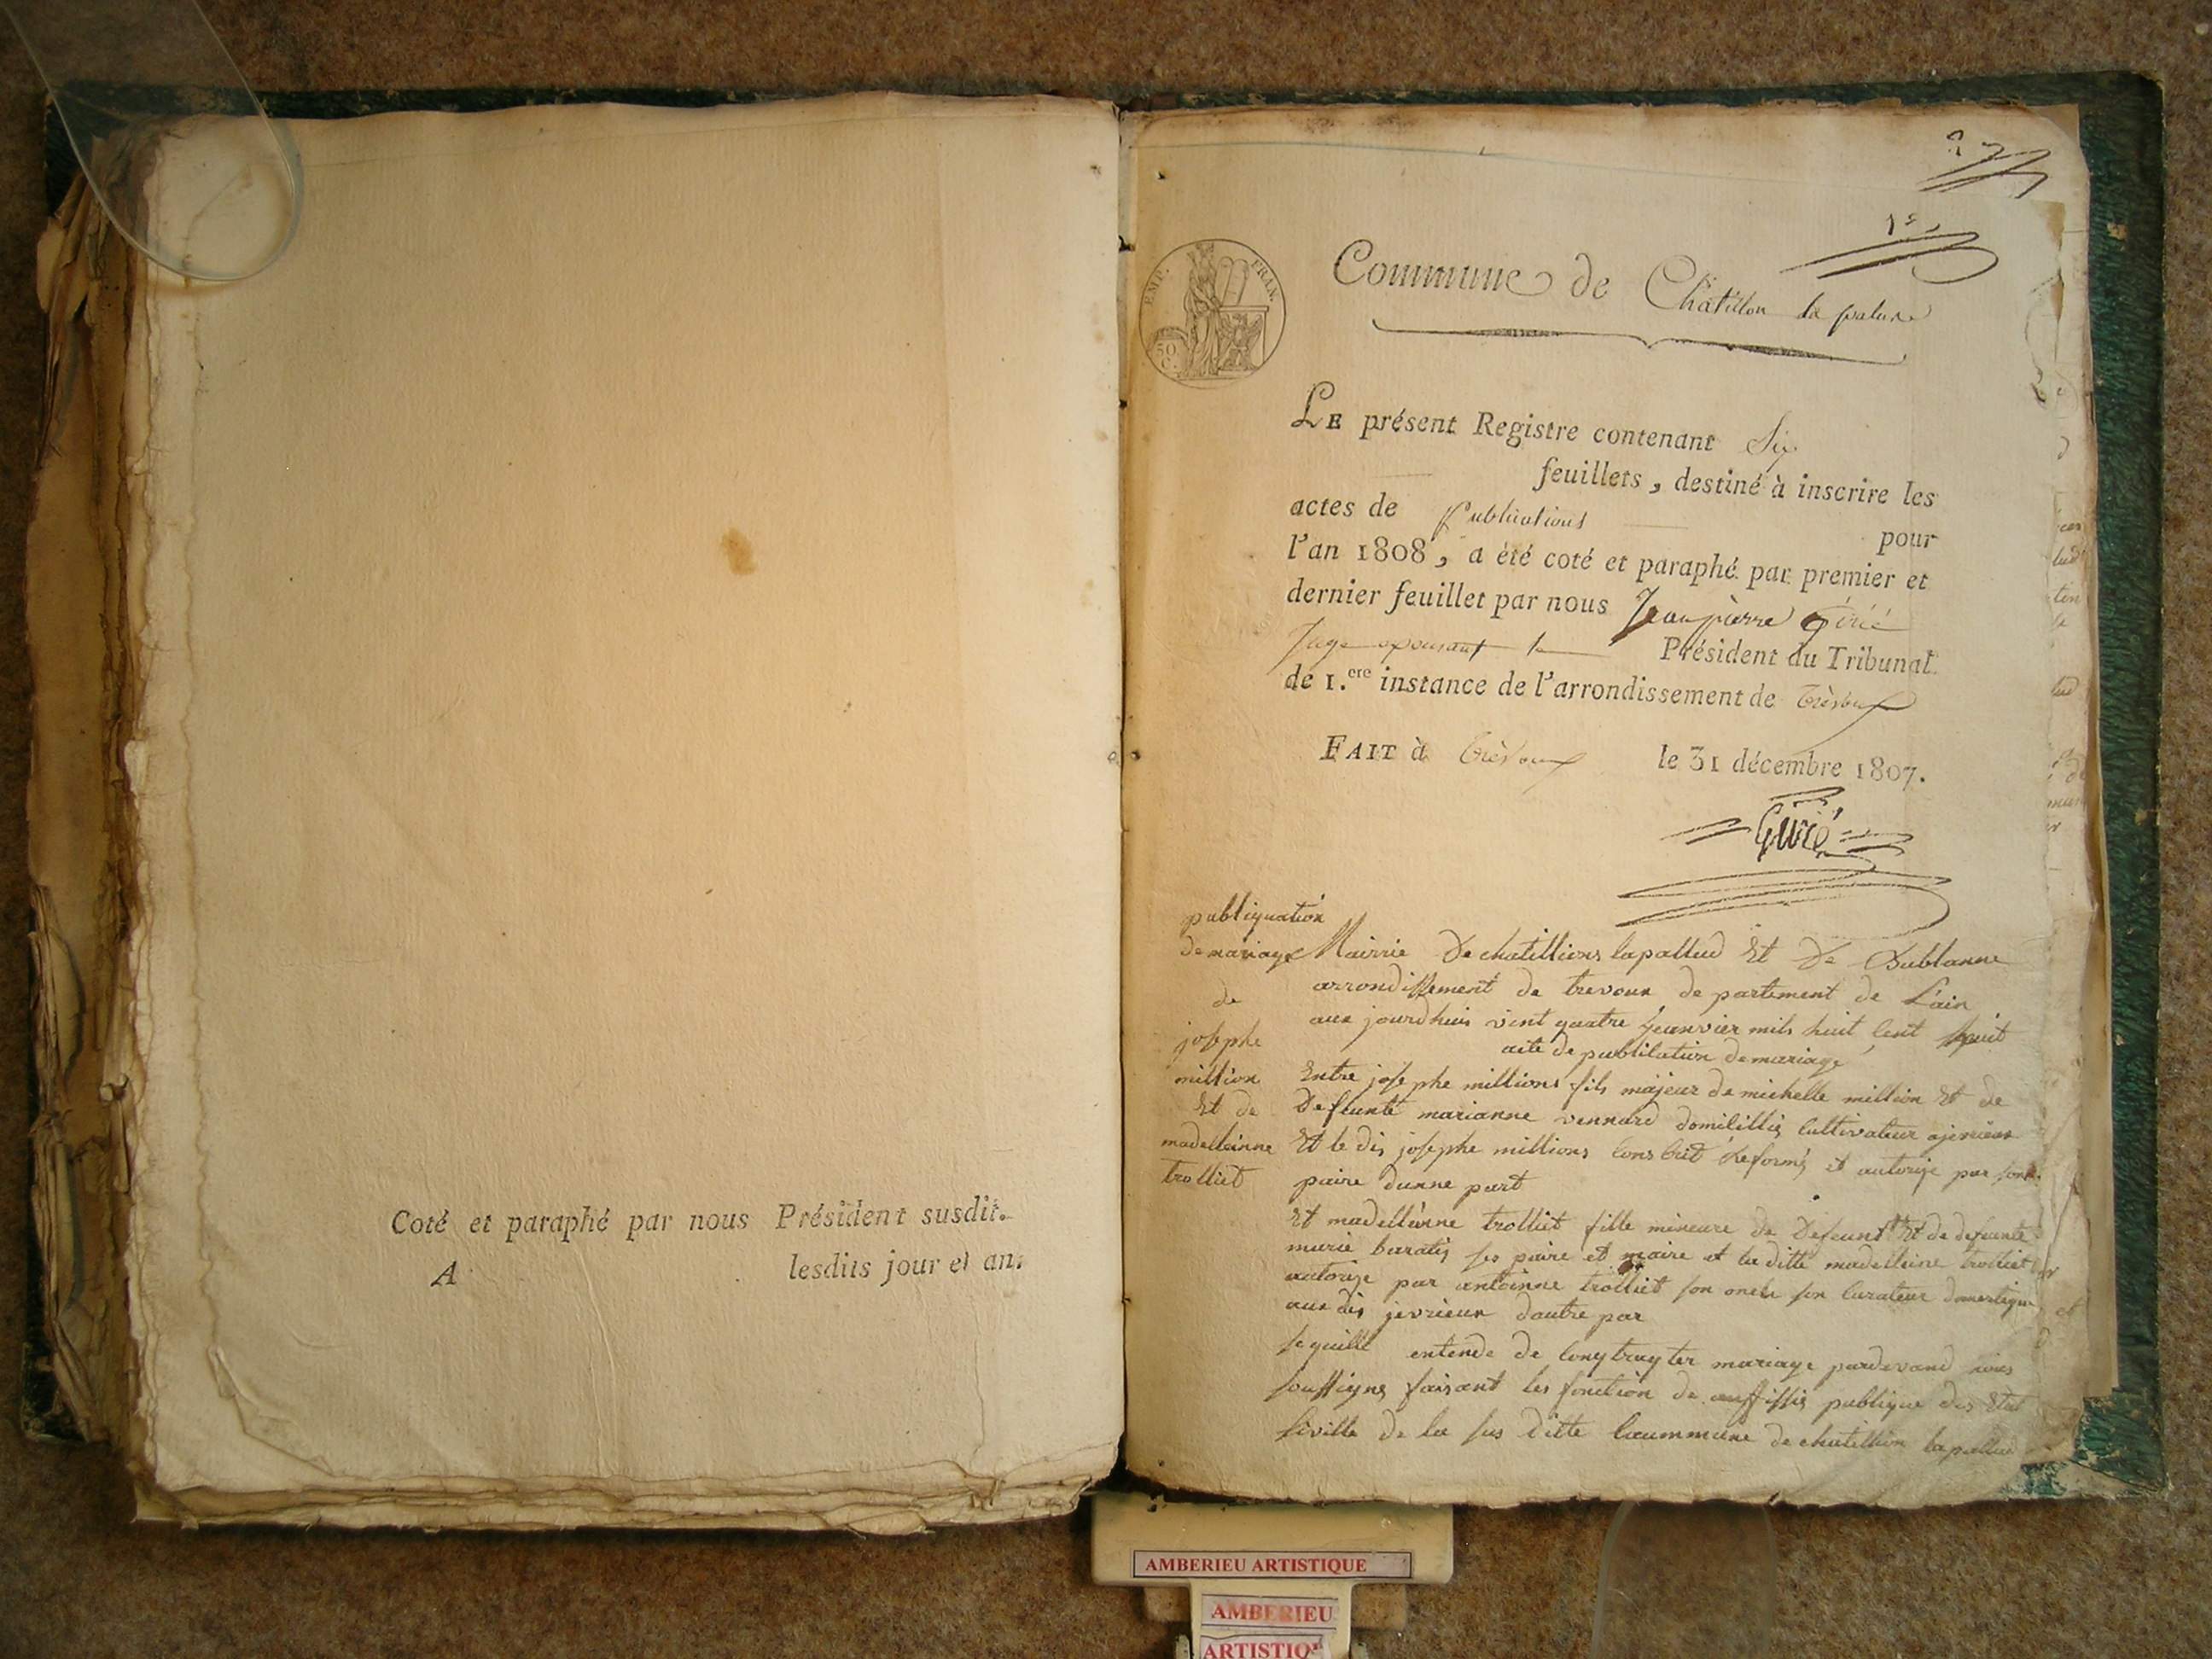 Coté et paraphé par nous Président susdit.
A lesdits jour et an.
1er
EMP. FRAN.
50 C.
Commune de Châtillon la palue
LE présent Registre contenant Six
feuillets, destiné à inscrire les
actes de Publications pour
l'an 1808, a été coté et paraphé par premier et
dernier feuillet par nous Jean pierre
Juge exposant le Président du Tribunal
de 1.ere instance de l'arrondissement de Trèvoux
FAIT à Trèvoux le 31 décembre 1807.
publiquation
de mariage
de
josephe
million
Et de
madelleinne
trolliet
Mairie De chatillions lapallud Et De Bublanne
arrondissement de trevoux de partement de L'ain
aux jourdhuis vint quatre jeanvier mils huit cent huit
aite de publication de mariage
Entre josephe millions fils majeur de michelle million Et de
Defeunte marianne vennard domicillié cultivateur ajevrieux
Et le dis josephe millions conscrit Reformé et autorize par son
paire dunne part
Et madelleinne trolliet fille mineure de Defeunt Et de defeunte
marie baratis ses paire et maire et la ditte madelleine trolliet
autorize par antoinne trolliet son oncle son curateur domestique
aux dis jevrieux dautre par
lequelle entende de contracter mariage pardevand nous
soussigné faisant les fonction de publique des Etat
siville de la sus ditte coummune de chatillion lapallud
AMBERIEU ARTISTIQUE
AMBERIEU
ARTISTIQU